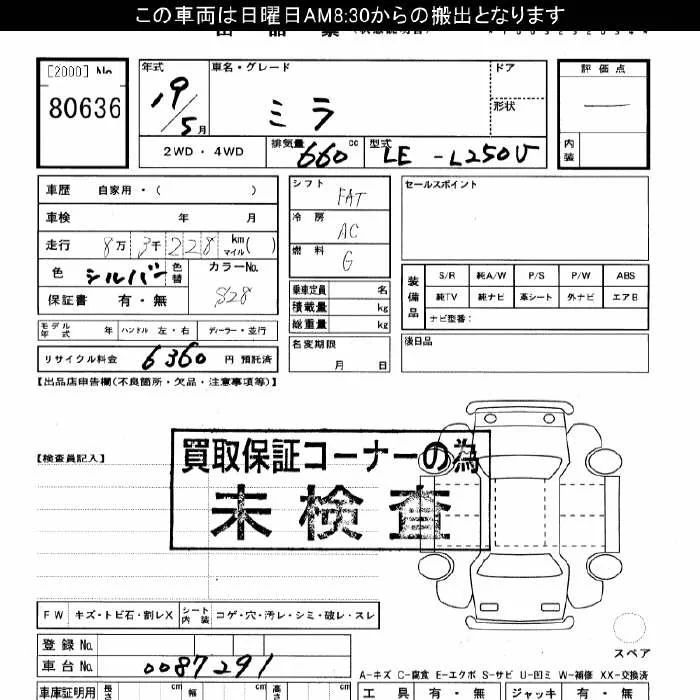 この車両は日曜日AM8:30からの搬出となります
出品票
[2000] No
80636
年式
19/5月
車名・グレード
ミラ
ドア
形状
評価点
—
内装
2WD・4WD
排気量 660 cc
型式 LE-L250V
車歴 自家用・( )
車検 年 月
走行 8万3千228 km マイル( )
色 シルバー 色替
カラーNo. S28
保証書 有・無
モデル年式 年 ハンドル 左・右 ディーラー・並行
リサイクル料金 6360 円 預託済
シフト FAT
冷房 AC
燃料 G
乗車定員 名
積載量 kg
総重量 kg
名変期限 月 日
セールスポイント
装備品
S/R 純A/W P/S P/W ABS
純TV 純ナビ 革シート 外ナビ エアB
ナビ型番:
後日品
【出品店申告欄(不良箇所・欠品・注意事項等)】
【検査員記入】
買取保証コーナーの為
未検査
FW キズ・トビ石・割レX シート内装 コゲ・穴・汚レ・シミ・破レ・スレ
登録No.
車台No. 0087291
スペア
A-キズ C-腐食 E-エクボ S-サビ U-凹ミ W-補修 XX-交換済
車庫証明用 長さ cm 幅 cm 高さ cm
工具 有・無 ジャッキ 有・無